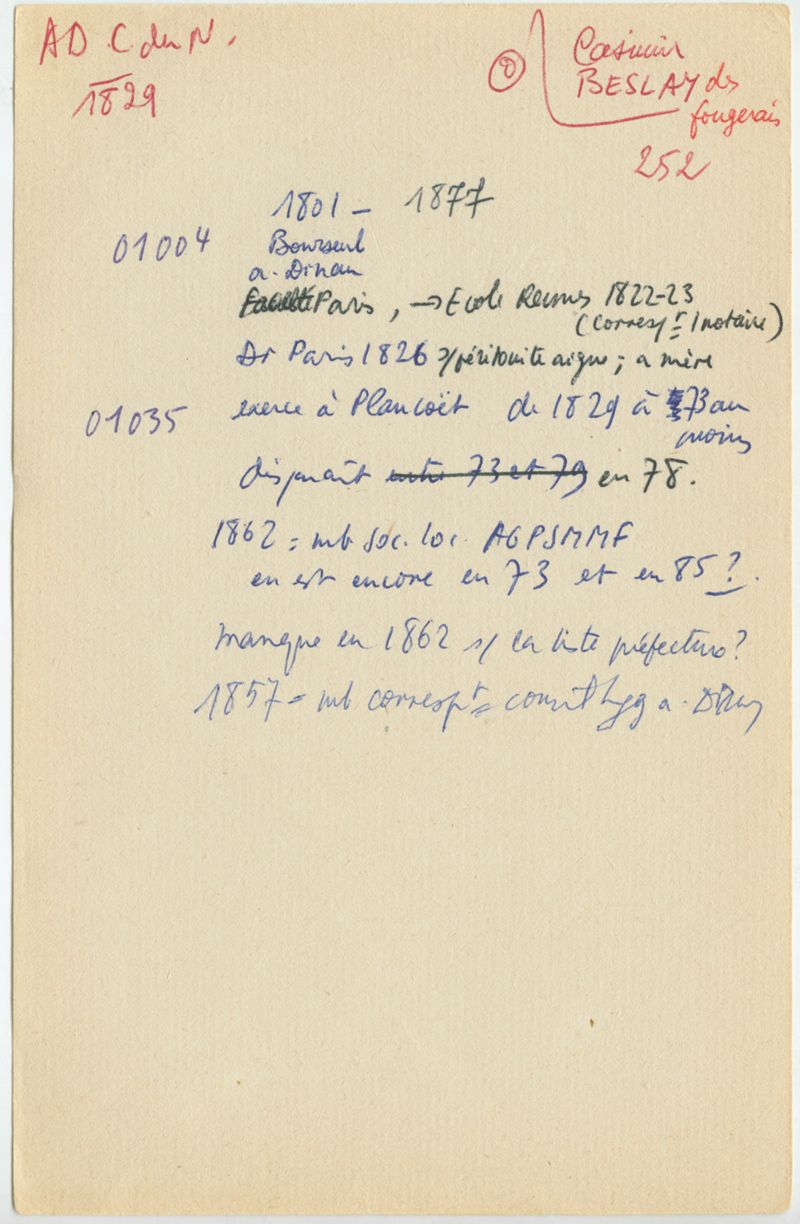 AD C. du N.
1829
Casimir
BESLAY des
fougerais
252
1801 – 1877
01004 Bourseul
a. Dinan
Faculté Paris, → Ecole Rennes 1822-23
(corresp^t 1 notaire)
Dr Paris 1826 s/péritonite aigue ; a mère
01035 exerce à Plancoët de 1829 à 73 au
moins
disparait entre 73 et 79 en 78.
1862 = mb soc. loc. AGPSMMF
en est encore en 73 et en 85 ?.
manque en 1862 s/ la liste préfecture ?
1857 = mb corresp^t = comit hyg a. Dinan